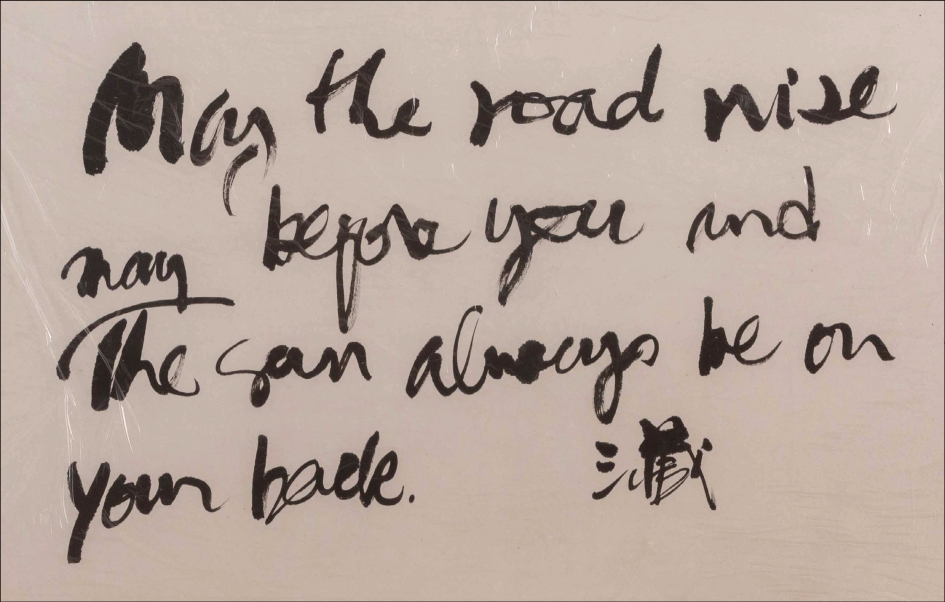 May the road rise
before you and
may
The sun always be on
your back. 三藏